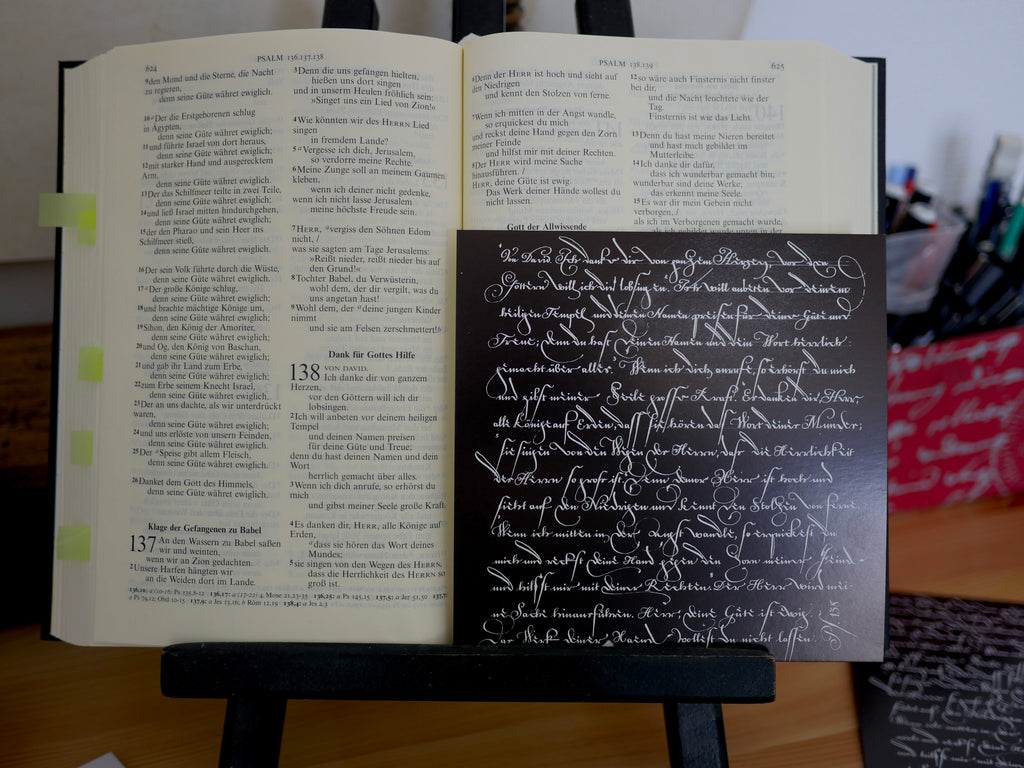 624
PSALM 136,137,138
9den Mond und die Sterne, die Nacht
zu regieren,
denn seine Güte währet ewiglich.
10aDer die Erstgeborenen schlug
in Ägypten,
denn seine Güte währet ewiglich;
11und führte Israel von dort heraus,
denn seine Güte währet ewiglich;
12mit starker Hand und ausgerecktem
Arm,
denn seine Güte währet ewiglich.
13Der das Schilfmeer teilte in zwei Teile,
denn seine Güte währet ewiglich;
14und ließ Israel mitten hindurchgehen,
denn seine Güte währet ewiglich;
15der den Pharao und sein Heer ins
Schilfmeer stieß,
denn seine Güte währet ewiglich.
16Der sein Volk führte durch die Wüste,
denn seine Güte währet ewiglich.
17aDer große Könige schlug,
denn seine Güte währet ewiglich;
18und brachte mächtige Könige um,
denn seine Güte währet ewiglich;
19Sihon, den König der Amoriter,
denn seine Güte währet ewiglich;
20und Og, den König von Baschan,
denn seine Güte währet ewiglich;
21und gab ihr Land zum Erbe,
denn seine Güte währet ewiglich;
22zum Erbe seinem Knecht Israel,
denn seine Güte währet ewiglich.
23Der an uns dachte, als wir unterdrückt
waren,
denn seine Güte währet ewiglich;
24und uns erlöste von unsern Feinden,
denn seine Güte währet ewiglich.
25Der aSpeise gibt allem Fleisch,
denn seine Güte währet ewiglich.
26Danket dem Gott des Himmels,
denn seine Güte währet ewiglich.
Klage der Gefangenen zu Babel
137 An den Wassern zu Babel saßen
wir und weinten,
wenn wir an Zion gedachten.
2Unsere Harfen hängten wir
an die Weiden dort im Lande.
3Denn die uns gefangen hielten,
hießen uns dort singen
und in unserm Heulen fröhlich sein:
»Singet uns ein Lied von Zion!«
4Wie könnten wir des HERRN Lied
singen
in fremdem Lande?
5aVergesse ich dich, Jerusalem,
so verdorre meine Rechte.
6Meine Zunge soll an meinem Gaumen
kleben,
wenn ich deiner nicht gedenke,
wenn ich nicht lasse Jerusalem
meine höchste Freude sein.
7HERR, avergiss den Söhnen Edom
nicht, /
was sie sagten am Tage Jerusalems:
»Reißt nieder, reißt nieder bis auf
den Grund!«
8Tochter Babel, du Verwüsterin,
wohl dem, der dir vergilt, was du
uns angetan hast!
9Wohl dem, der adeine jungen Kinder
nimmt
und sie am Felsen zerschmettert!b
Dank für Gottes Hilfe
138 VON DAVID.
Ich danke dir von ganzem
Herzen,
vor den Göttern will ich dir
lobsingen.
2Ich will anbeten vor deinem heiligen
Tempel
und deinen Namen preisen
für deine Güte und Treue;
denn du hast deinen Namen und dein
Wort
herrlich gemacht über alles.
3Wenn ich dich anrufe, so erhörst du
mich
und gibst meiner Seele große Kraft.
4Es danken dir, HERR, alle Könige auf
Erden,
adass sie hören das Wort deines
Mundes;
5sie singen von den Wegen des HERRN,
dass die Herrlichkeit des HERRN so
groß ist.
PSALM 138,139
625
6Denn der HERR ist hoch und sieht auf
den Niedrigen
und kennt den Stolzen von ferne.
7Wenn ich mitten in der Angst wandle,
so erquickest du mich
und reckst deine Hand gegen den Zorn
meiner Feinde
und hilfst mir mit deiner Rechten.
8Der HERR wird meine Sache
hinausführen. /
HERR, deine Güte ist ewig.
Das Werk deiner Hände wollest du
nicht lassen.
Gott der Allwissende
12so wäre auch Finsternis nicht finster
bei dir,
und die Nacht leuchtete wie der
Tag.
Finsternis ist wie das Licht.
13Denn du hast meine Nieren bereitet
und hast mich gebildet im
Mutterleibe.
14Ich danke dir dafür,
dass ich wunderbar gemacht bin;
wunderbar sind deine Werke;
das erkennt meine Seele.
15Es war dir mein Gebein nicht
verborgen, /
als ich im Verborgenen gemacht wurde,
Von David. Ich danke dir von ganzem Herzen, vor den
Göttern will ich dir lobsingen. Ich will anbeten vor deinem
heiligen Tempel und deinen Namen preisen für deine Güte und
Treue; denn du hast deinen Namen und dein Wort herrlich
gemacht über alles. Wenn ich dich anrufe, so erhörst du mich
und gibst meiner Seele große Kraft. Es danken dir, Herr,
alle Könige auf Erden, dass sie hören das Wort deines Mundes;
sie singen von den Wegen des Herrn, dass die Herrlichkeit
des Herrn so groß ist. Denn der Herr ist hoch und
sieht auf den Niedrigen und kennt den Stolzen von ferne.
Wenn ich mitten in der Angst wandle, so erquickest du
mich und reckst deine Hand gegen den Zorn meiner Feinde
und hilfst mir mit deiner Rechten. Der Herr wird mei-
ne Sache hinausführen. Herr, deine Güte ist ewig.
Das Werk deiner Hände wollest du nicht lassen.